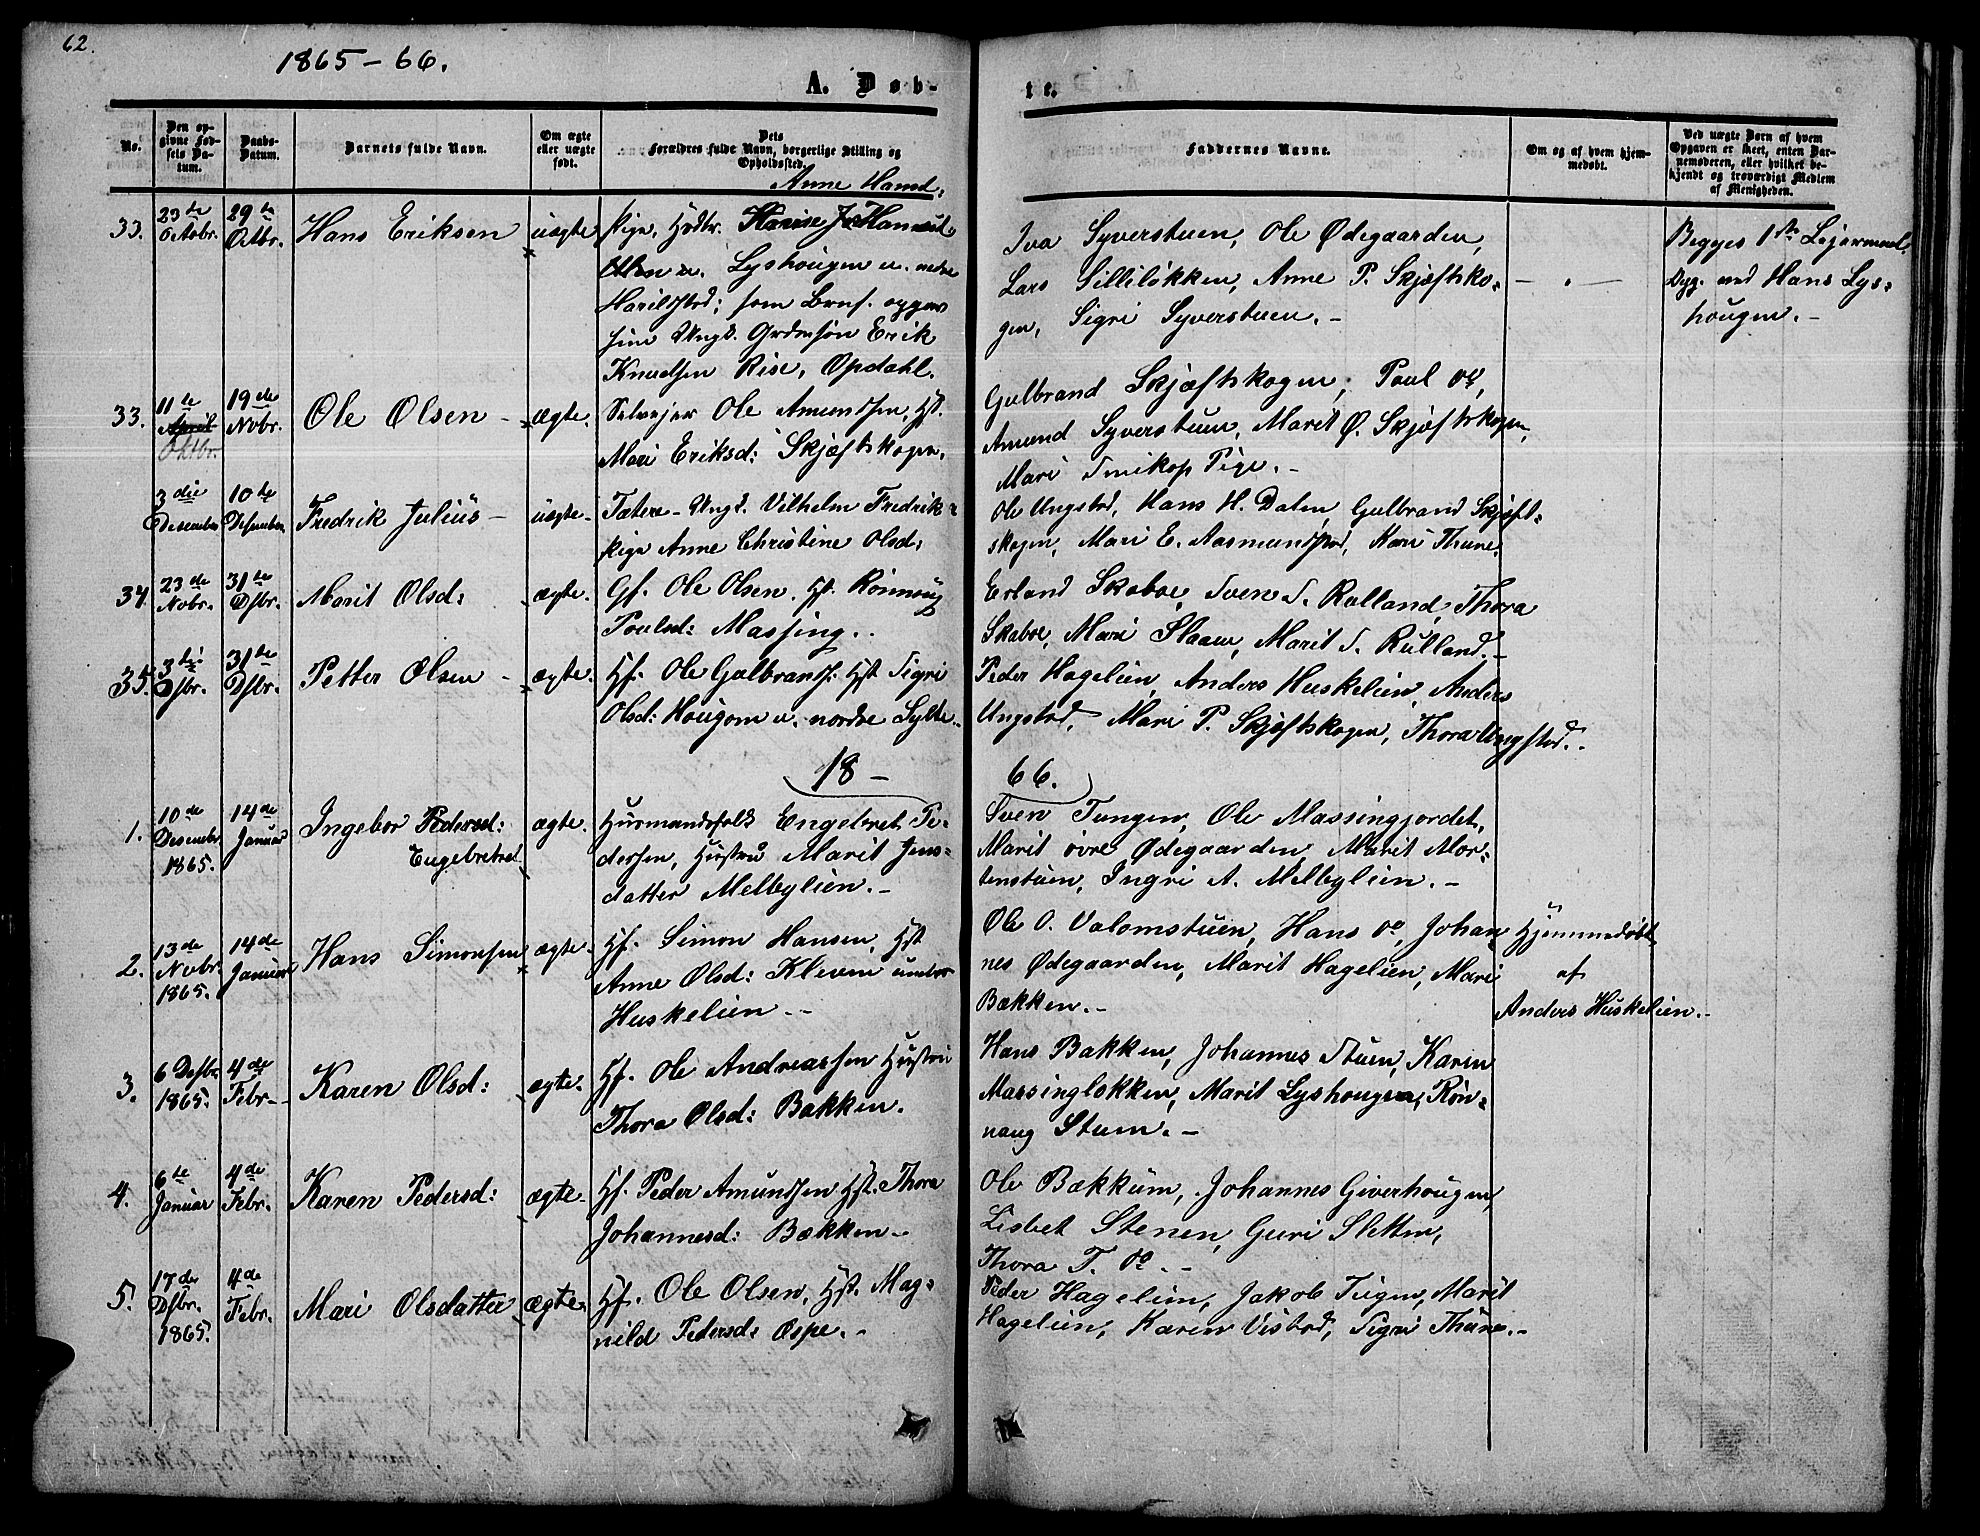 62.
1865-66.
A. Døb-
te.
No.
Den op-
givne Fød-
sels Da-
tum.
Daabs-
Datum.
Barnets fulde Navn.
Om ægte
eller uægte
født.
Dets
Forældres fulde Navn, borgerlige Stilling og
Opholdssted.
Faddernes Navne.
Om og af hvem hjem-
medøbt.
Ved uægte Børn af hvem
Opgaven er skeet, enten Bar-
nemoderen, eller hvilket be-
kjendt og troværdigt Medlem
af Menigheden.
Anne Hansd.
33. 23de Octobr. 29de Octbr. Hans Eriksen uægte Pige,
Lyshougen u. nedre
Harildstad; som Barnf. opgives
Ungk. Grdmsøn Erik
Knudsen Rise, Opdahl.
Iva Syverstuen, Ole Ødegaarden,
Lars Silliløkken, Anne P. Skjæftsko-
gen, Sigri Syverstuen.-
Begges 1ste Leiermaal.
Dyg. ved Hans Lys-
hougen.-
33. 11te April Oktbr. 19de Novbr. Ole Olsen - ægte. Selveier Ole Amundsen, Hst.
Mari Eriksd: Skjæftskogen.
Gulbrand Skjæftskogen, Poul do,
Amund Syverstuen, Marit Ø. Skjæftskogen,
Mari Smikop Pige.-
3die Desember 10de Desember Fredrik Julius - uægte - Tatere - Ungk. Vilhelm Fredrik-
Pige Anne Christine Olsd:
Ole Ungstad, Hans H. Dalen, Gulbrand Skjæft-
skogen, Mari E. Aasmundstad, Kari Thune.
34. 23de Novbr. 31te Dsbr. Marit Olsd: ægte. Gf. Ole Olsen, Hst. Rønnoug
Poulsd: Massing..
Erland Skaboe, Sven S. Rulland, Thora
Skaboe, Mari Slaaen, Marit S. Rulland.-
35. 3die Dsbr. 31te Dsbr. Petter Olsen - ægte. Hf. Ole Gulbrands. Hst Sigri
Olsd: Hougom u. nordre Sylte..
Peder Hagelien, Anders Huskelien, Anders
Ungstad, Mari P. Skjæftskogen, Thora Ungstad..
18-
66.
1. 10de Desember 1865. 14de Januar Ingebor Pedersd: Engebretsd ægte. Husmandsfolk Engebret Pe-
dersen, Hustru Marit Jens-
datter Melbylien.-
Sven Tungen, Ole Massingjordet,
Marit øvre Ødegaarden, Marit Mor-
tenstuen, Ingri A. Melbylien.-
2. 13de Novbr. 1865. 14de Januar Hans Simonsen ægte. Hf. Simon Hansen, Hst
Anne Olsd: Kleven under
Huskelien.-
Ole O. Valomstuen, Hans do, Johan-
nes Ødegaarden, Marit Hagelien, Mari
Bækken.-
Hjemmedøbt
af
Anders Huskelien.-
3. 6 Desbr. 1865. 4de Febr. Karen Olsd: ægte. Hf. Ole Andreassen Hustru
Thora Olsd: Bakken.
Hans Bakken, Johannes Stuen, Karen
Massingløkken, Marit Lyshougen, Røn-
naug Stuen.-
4. 6te Januar 4de Febr. Karen Pedersd: ægte. Hf. Peder Amundsen Hst. Thora
Johannesd: Bækken.-
Ole Bækkum, Johannes Giverhougen,
Lisbet Stenen, Guri Sletten,
Thora T. do.-
5. 17de Dsbr. 1865. 4de Febr. Mari Olsdatter ægte. Hf. Ole Olsen, Hst. Mag-
nild Pedersd: Espe.-
Peder Hagelien, Jakob Tugen, Marit
Hagelien, Karen Vistad, Sigri Thune.-